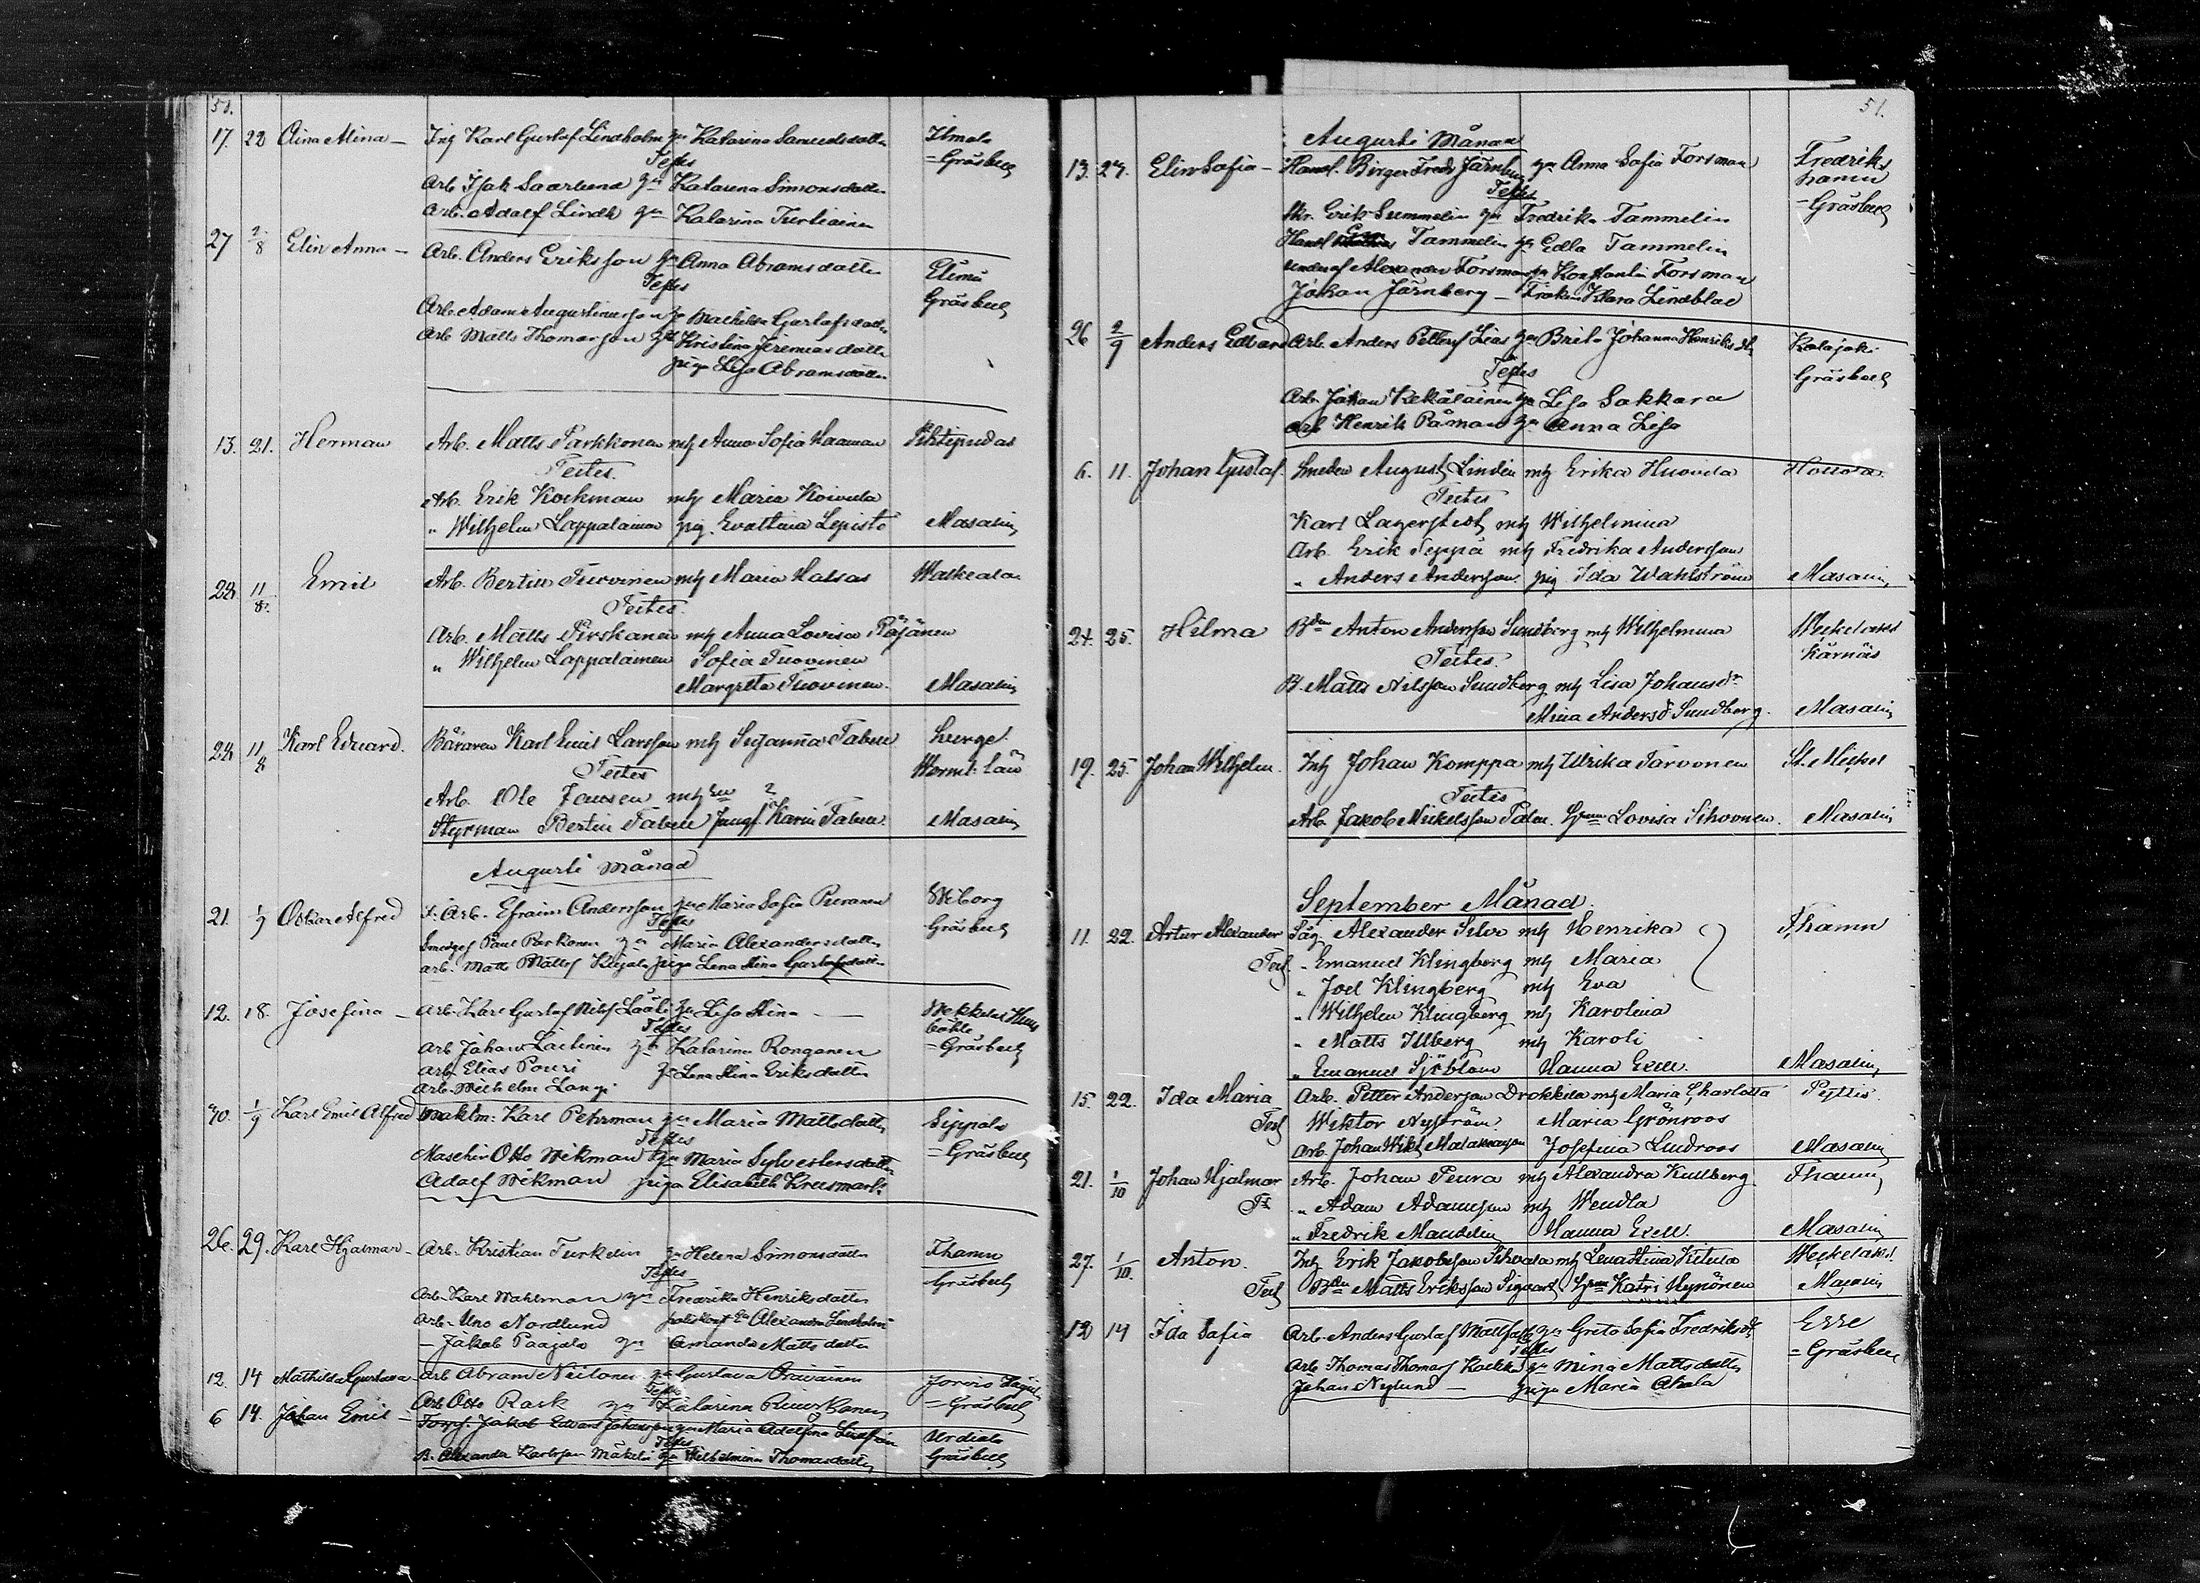 51.
17. 22 Aina Alina — Inh Karl Gustaf Lindholm gm Katarina Samuelsdotter Ilmola
Testes = Gräsbeck
Arb. Isak Saarlund gm Katarina Simonsdotter
Arb. Adolf Lindh gm Katarina Turtiainen
27 2/8 Elin Anna — Arb. Anders Eriksson gm Anna Abramsdotter Elimä
Testes Gräsbeck
Arb. Adam Augustinusson gm Mathilda Gustafsdotter
Arb Matts Thomasson gm Kristina Jeremiasdotter
piga Lisa Abramsdotter
13. 21. Herman Arb. Matts Parkkonen mh Anna Sofia Haaman Pihtipudas
Testes.
Arb. Erik Kockman mh Maria Koivula
" Wilhelm Lappalainen pig. Evattina Lepistö Masalin
28. 11/8. Emil Arb. Bertin Tuovinen mh Maria Halsas Walkeala
Testes.
Arb. Matts Pirskanen mh Anna Lovisa Räjänen
" Wilhelm Lappalainen Sofia Tuovinen
Margreta Tuovinen. Masalin
28 11/8 Karl Eduard. Båraren Karl Emil Larsson mh Susanna Tabell
Testes Werml. län
Arb. Ole Jansen mh 2
Styrman Bertin Tabell Jungf. Karin Tabell Masalin
Augusti Månad
21. 1/9 Oskar Alfred Arb. Efraim Andersson gm Maria Sofia Wiborg
Testes Gräsbeck
Paul Parkonen gm Maria Alexandersdotter
arb. Matts piga Lena Stina Gustafsdotter
12. 18. Josefina — Arb. Karl Gustaf Nilsf gm Lisa Stina — Wekkelax
Testes
Arb Johan Laitinen gm Katarina Ronganen = Gräsbeck
arb Elias Pouri gm Lena Stina Eriksdotter
Arb. Wilhelm Langi
30. 1/9 Karl Emil Alfred Karl Pehrman gm Maria Mattsdotter Sippola
Testes = Gräsbeck
Maschin Otto Wikman gm Maria Sylvestersdotter
Adolf Wikman piga Elisabeth
26. 29. Karl Hjalmar — Arb. Kristian Turkelin gm Helena Simonsdotter Fhamn
Testes Gräsbeck
Arb. Karl Wahlman gm Fredrika Henriksdotter
Arb. Uno Nordlund Alexandra Lindholm
— Jakob Paajala gm Amanda Mattsdotter
12. 14 Mathilda Gustava — Arb Abram Niilonen gm Gustava Oravainen Jorois
Testes
Arb Otto Rask gm Katarina = Gräsbeck
6 14. Johan Emil — Torpf. Jakob Edvard Johansson gm Maria Adolfina Lindfors Urdiala
Testes
B. Alexander Karlsson Mäkelä gm Wilhelmina Thomasdotter Gräsbeck
51.
Augusti Månad
13. 27. Elin Sofia — Handl. Birger Fredr Järnberg gm Anna Sofia Forsman Fredriks
Testes hamn
Skr. Erik Summelin gm Fredrika Tammelin = Gräsbeck
Handl Tammelin gm Edla Tammelin
Alexander Forsman gm Konstantin Forsman
Johan Järnberg — Fröken Klara Lindblad
26 2/9 Anders Edvard Arb. Anders Petterf Lias gm Brita Johanna Henriksdr Kalajoki
Testes Gräsbeck
Arb. Johan Kekäläinen gm Lisa Sakkara
arb Henrik Påman gm Anna Lisa
6. 11. Johan Gustaf. Smeden August Linden mh Erika Huovila Hollola.
Testes
Karl Lagerstedt mh Wilhelmina
Arb. Erik Seppä mh Fredrika Andersson
" Anders Andersson. pig Ida Wahlström Masalin
24. 25. Hilma Bden Anton Andersson Sundberg mh Wilhelmina Weckelaks
Testes. Kärnäs
B. Matts Nilsson Sundberg mh Lisa Johansdr
Mina Andersdr Sundberg. Masalin
19. 25. Johan Wilhelm. Inh Johan Komppa mh Ulrika Tarvonen St. Michel
Testes
Arb. Jakob Mickelsson Lovisa Sihvonen. Masalin
September Månad.
11. 22. Artur Alexander Såg. Alexander Selve mh Henrika Fhamn
Test " Emanuel Klingberg mh Maria
" Joel Klingberg mh Eva
" Wilhelm Klingberg mh Karolina
" Matts Illberg mh Karoli
" Emanuel Sjöblom Hanna Exell Masalin
15. 22. Ida Maria Arb. Petter Andersson Drokkila mh Maria Charlotta Pyttis.
Test Wiktor Nyström. Maria Grönroos
Arb. Johan Wikt Josefina Lindroos Masalin
21. 1/10 Johan Hjalmar Arb. Johan Peura mh Alexandra Kullberg. Fhamn
Ts. " Adam Adamsson mh Wendla
" Fredrik Mandelin Hanna Exell. Masalin
27. 1/10. Anton. Inh Erik Jakobsson Sihvola mh Lena Stina Kitula Weckelaks.
Test Bden Matts Eriksson Katri Hynönen Masalin
12 14 Ida Sofia Arb. Anders Gustaf gm Greta Sofia Fredriksdr Esse
Testes = Gräsbeck
Arb Thomas Thomasf gm Mina Mattsdotter
Johan Nylund — piga Maria Ahola